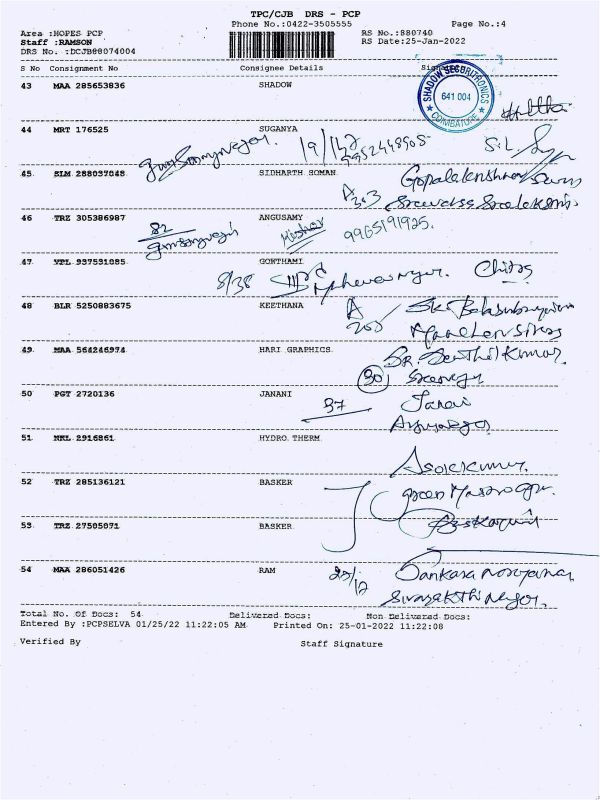 TPC/CJB DRS - PCP
Phone No.:0422-3505555 Page No.:4
Area :HOPES PCP RS No.:880740
Staff :RAMSON RS Date:25-Jan-2022
DRS No. :DCJB88074004
S No Consignment No Consignee Details Signature
43 MAA 285653836 SHADOW
SHADOW SECURITRONICS
641 004
COIMBATORE
44 MRT 176525 SUGANYA
19/142
9952448905
S.L
45 SLM 288037048 SIDHARTH SOMAN
Gopalakrishnan
A
303
46 TRZ 305386987 ANGUSAMY
82
9965191925.
47 VPL 937531085 GOWTHAMI
8/38
48 BLR 5250883675 KEETHANA
A
208
49 MAA 564246974 HARI GRAPHICS
SR. Senthil Kumar
30
50 PGT 2720136 JANANI
37
51 NKL 2916861 HYDRO THERM
Asokkumar
52 TRZ 285136121 BASKER
53 TRZ 27505071 BASKER
54 MAA 286051426 RAM
Sankara narayanan
Total No. Of Docs: 54 Delivered Docs: Non Delivered Docs:
Entered By :PCPSELVA 01/25/22 11:22:05 AM Printed On: 25-01-2022 11:22:08
Verified By Staff Signature